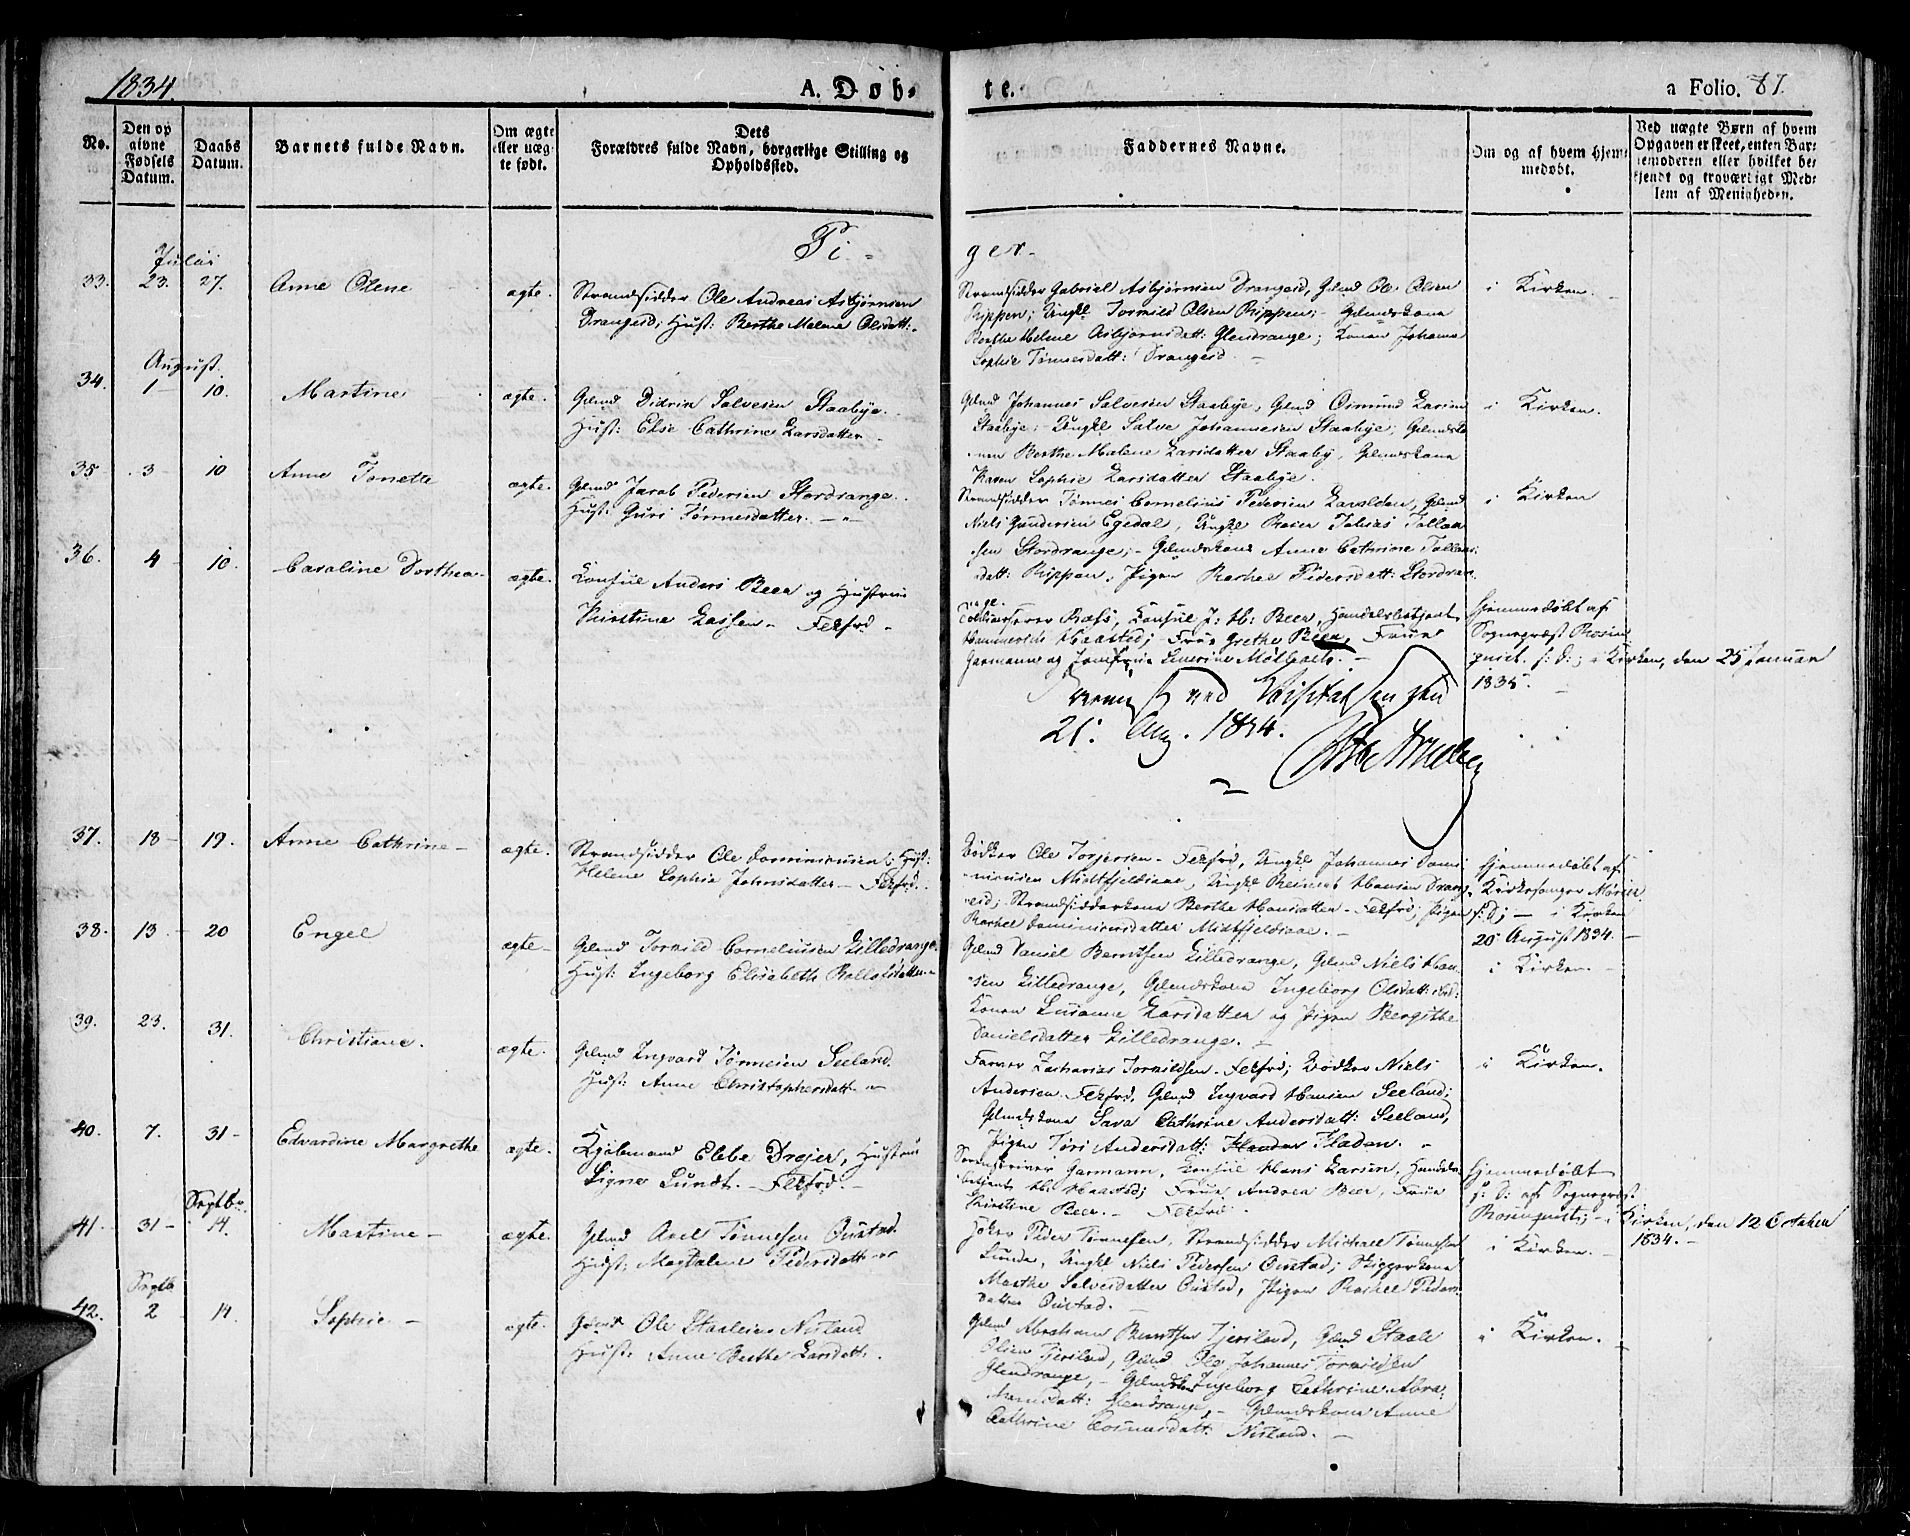 1834.
A. Døb-
te.
a Folio. 87.
No.
Den op
givne
Fødsels
Datum.
Daabs
Datum.
Barnets fulde Navn.
Om ægte
eller uæg-
te født.
Dets
Forældres fulde Navn, borgerlige Stilling og
Opholdssted.
Faddernes Navne.
Om og af hvem hjem-
medøbt.
Ved uægte Børn af hvem
Opgaven er skeet, enten Bar-
nemoderen eller hvilket be-
kjendt og troværdigt Med-
lem af Menigheden.
Pi-
ger.
Julii
33. 23. 27. Anne Olene ægte. Strandsidder Ole Andreas Asbjørnsen
Drangeid; Hust: Berthe Malene Olsdatt:
Strandsidder Gabriel Asbjørnsen Drangeid, Glmd Ole Olsen
Rippen; Ungkl Tormild Olsen Rippen; Glmdskone
Berthe Helene Asbjørnsdatt: Glendrange; Konen Johanne
Sophie Tønnesdatt: Drangeid.
i Kirken.
August.
34. 1 10. Martine ægte. Glmd Didrik Salvesen Staabye.
Hust: Else Cathrine Larsdatter
Glmd Johannes Salvesen Staabye, Glmd Osmund Larsen
Staabye; Ungkl Salve Johannesen Staabye; Glmdsko
nen Berthe Malene Larsdatter Staaby, Glmdskone
Karen Sophie Larsdatter Staabye.
i Kirken.
35 3 10 Anne Tonette ægte. Glmd Jacob Pedersen Stordrange.
Hust: Guri Tønnesdatter.
Strandsidder Tønnes Cornelius Pedersen Lavolden, Glmd
Niels Gundersen Egedal, Ungkl Reier Tobias Tollac
sen Stordrange; Glmdskone Anne Cathrine Tollacs
datt: Rippen, Pigen Rachel Pedersdatt: Stordran
ge.
i Kirken
36. 4 10. Caroline Dorthea ægte. Consul Anders Beer og Hustrue
Kirstine Lassen - Fekfrd
Toldinsp Ræfs, Consul J: H: Beer, Handelsbetjent
Hammerolds Haasted; Frue Grethe Beer, Frue
Garmann og Jomfrue Severine Møllerts.
Hjemmedøbt af
Sognepræst Rosen
qvist. f: D:; i Kirken, den 25 Januar
1835.
ved Visitatsen den
21: Aug. 1834.
37. 18 19. Anne Cathrine ægte. Strandsidder Ole Dominicusen; Hust:
Helene Sophie Johnsdatter - Fekfrd.
Bødker Ole Torjersen - Fekfrd, Ungkl Johannes Domi
nicusen Midtfjeldiaae, Ungkl Reinert Hansen Drang
eid; Strandsidderkone Berthe Hansdatter - Fekfrd; Pigen
Rachel Dominicusdatter Midtfjeldiaae.
Hjemmedøbt af
Kirkesanger Mørier
f: D; i Kirken
20 August 1834.
38. 13. 20 Engel ægte Glmd Tormild Corneliusen Lilledrange.
Hust: Ingeborg Elisabeth Rollofsdatter
Glmd Daniel Berntsen Lilledrange, Glmd Niels Han
sen Lilledrange, Glmdskone Ingeborg Olsdatt: ibid:
Konen Susanne Larsdatter og Pigen Bergithe
Danielsdatter Lilledrange.
i Kirken.
39. 23. 31. Christiane. ægte. Glmd Ingvard Tønnesen Seeland.
Hust: Anne Christophersdatt:
Farver Zacharias Tormildsen. Fekfrd; Bødker Niels
Andersen Fekfrd, Glmd Ingvard Hansen Seeland;
Glmdskone Sara Cathrine Andersdatt: Seeland,
Pigen Tori Andersdatt: Fladen.
i Kirken.
40. 7. 31 Edvardine Margrethe ægte. Kjøbmand Ebbe Drejer, Hustrue
Signe Lundt. - Fekfrd.
Sorenskriver Garmann, Consul Hans Larsen, Handels
betjent H: Haasted; Frue Andrea Beer, Frue
Kirstine Beer. - Fekfrd.
Hjemmedøbt
f: D: af Sognepræst
Rosenqvist; i Kirken, den 12 October
1834.
Septbr.
41. 31 14. Martine ægte. Glmd Axel Tønnesen Øustad.
Hust: Magtalene Pedersdatt
Joker Peder Tønnesen, Strandsidder Michael Tønnesen
Lunde, Ungkl Niels Pedersen Øustad; Skipperkone
Marthe Salvesdatter Øustad, Pigen Rachel Peders
datter Øustad.
i Kirken.
Septb
42. 2 14. Sophie ægte. Glmd Ole Staalesen Nisland.
Hust: Anne Berthe Larsdatt:
Glmd Abraham Berntsen Tjersland, Glmd Staale
Olsen Tjersland, Glmd Ole Johannes Tormildsen
Glendrange, Glmdskone Ingeborg Cathrine Abra
hamsdatt: Glendrange, Glmdskone Anne
Cathrine Nisland.
i Kirken.